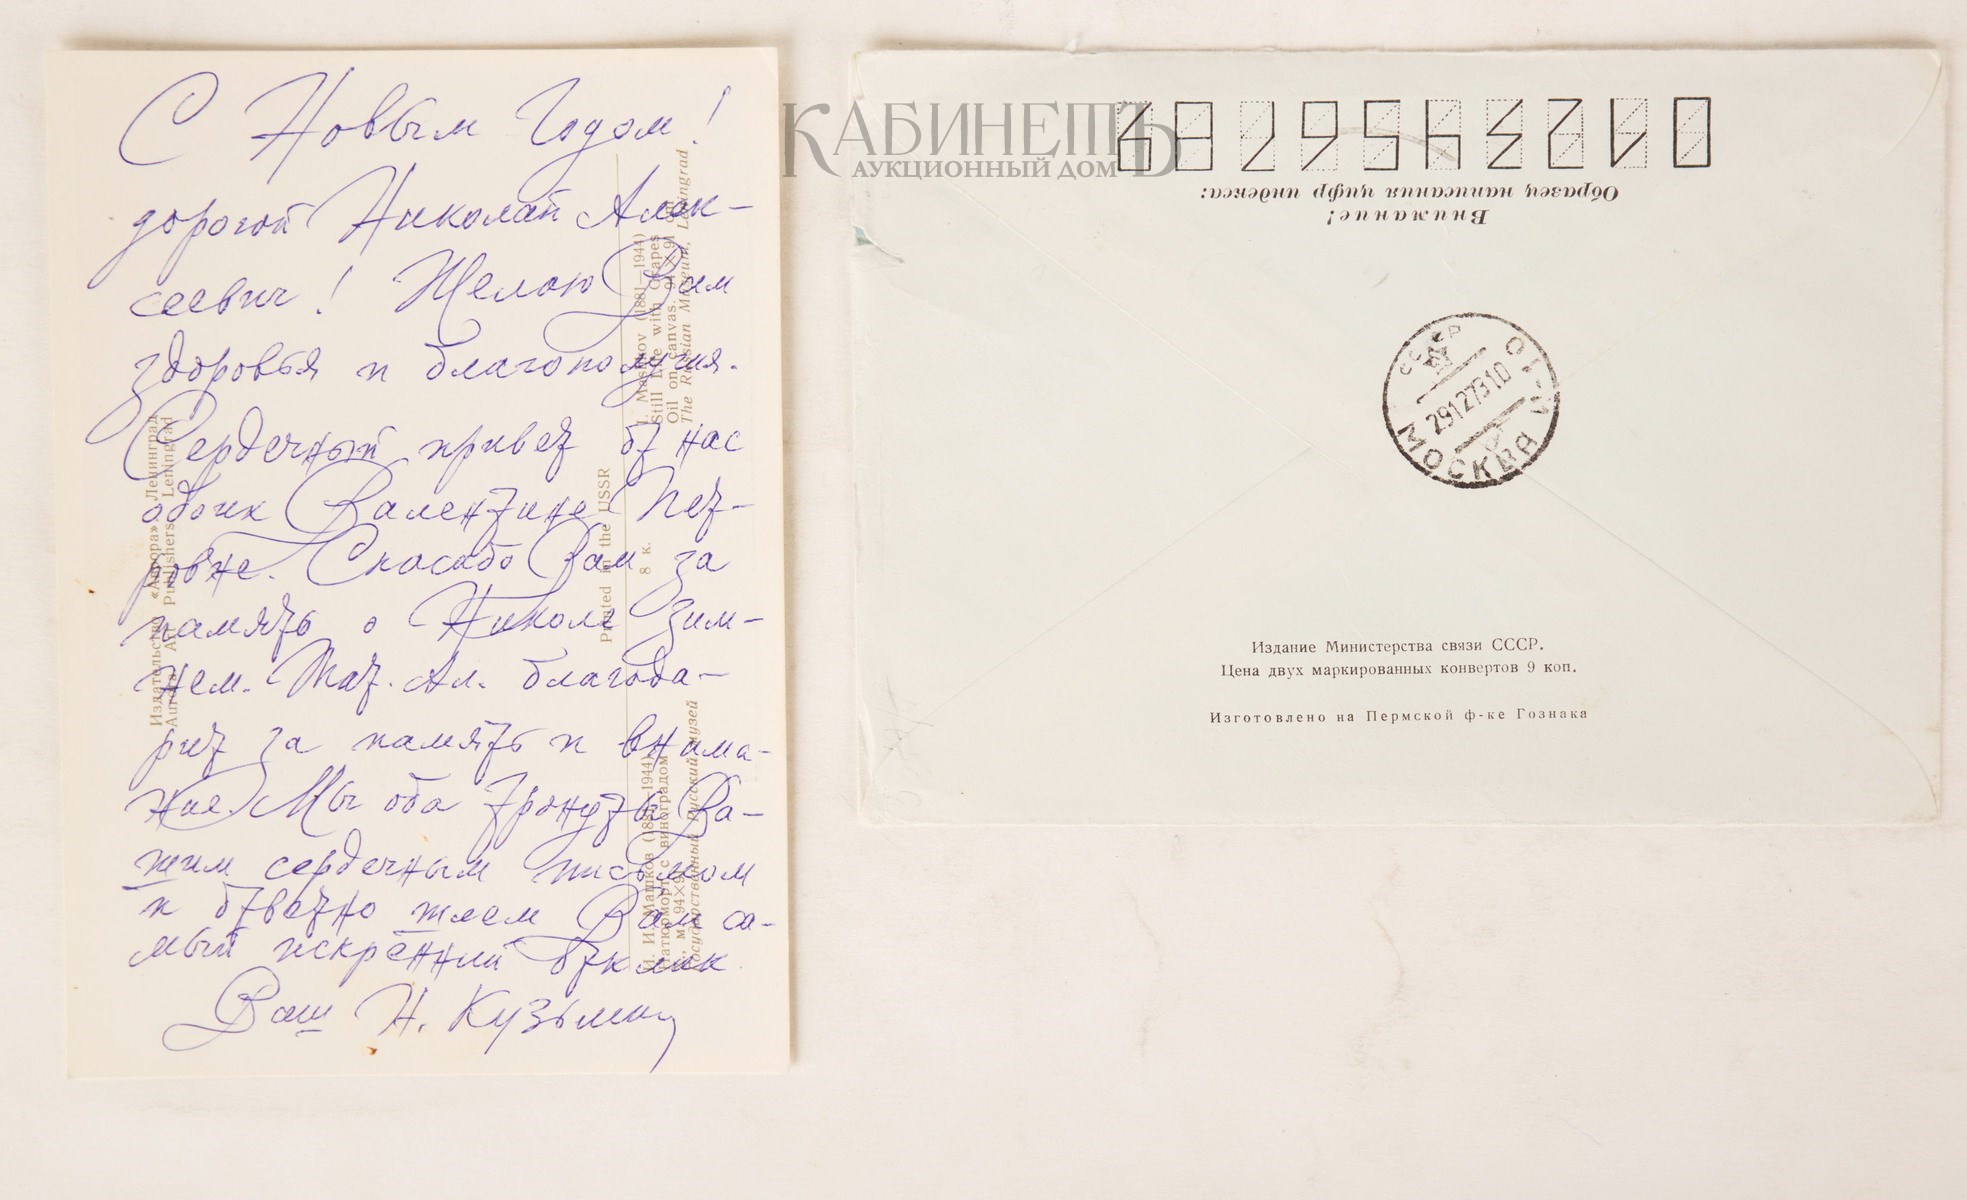 С Новым Годом!
дорогой Николай Алек-
сеевич! Желаю Вам
здоровья и благополучия.
Сердечный привет от нас
обоих Валентине Пет-
ровне. Спасибо Вам за
память о Николе Зим-
нем. Тат. Ал. благода-
рит за память и внима-
ние. Мы оба тронуты Ва-
шим сердечным письмом
и ответно шлем Вам са-
мый искренний отклик
Ваш Н. Кузьмин
Издательство «Аврора». Ленинград
Aurora Art Publishers. Leningrad
I. Mashkov (1881—1944)
Still Life with Grapes
Oil on canvas. 94×91
The Russian Museum, Leningrad
8 к. Printed in the USSR
И. И. Машков (1881—1944)
Натюрморт с виноградом
М., 94×91
Государственный Русский музей
КАБИНЕТЪ
АУКЦИОННЫЙ ДОМ
Внимание!
Образец написания цифр индекса:
0123456789
СССР
МОСКВА
29127310
Издание Министерства связи СССР.
Цена двух маркированных конвертов 9 коп.
Изготовлено на Пермской ф-ке Гознака